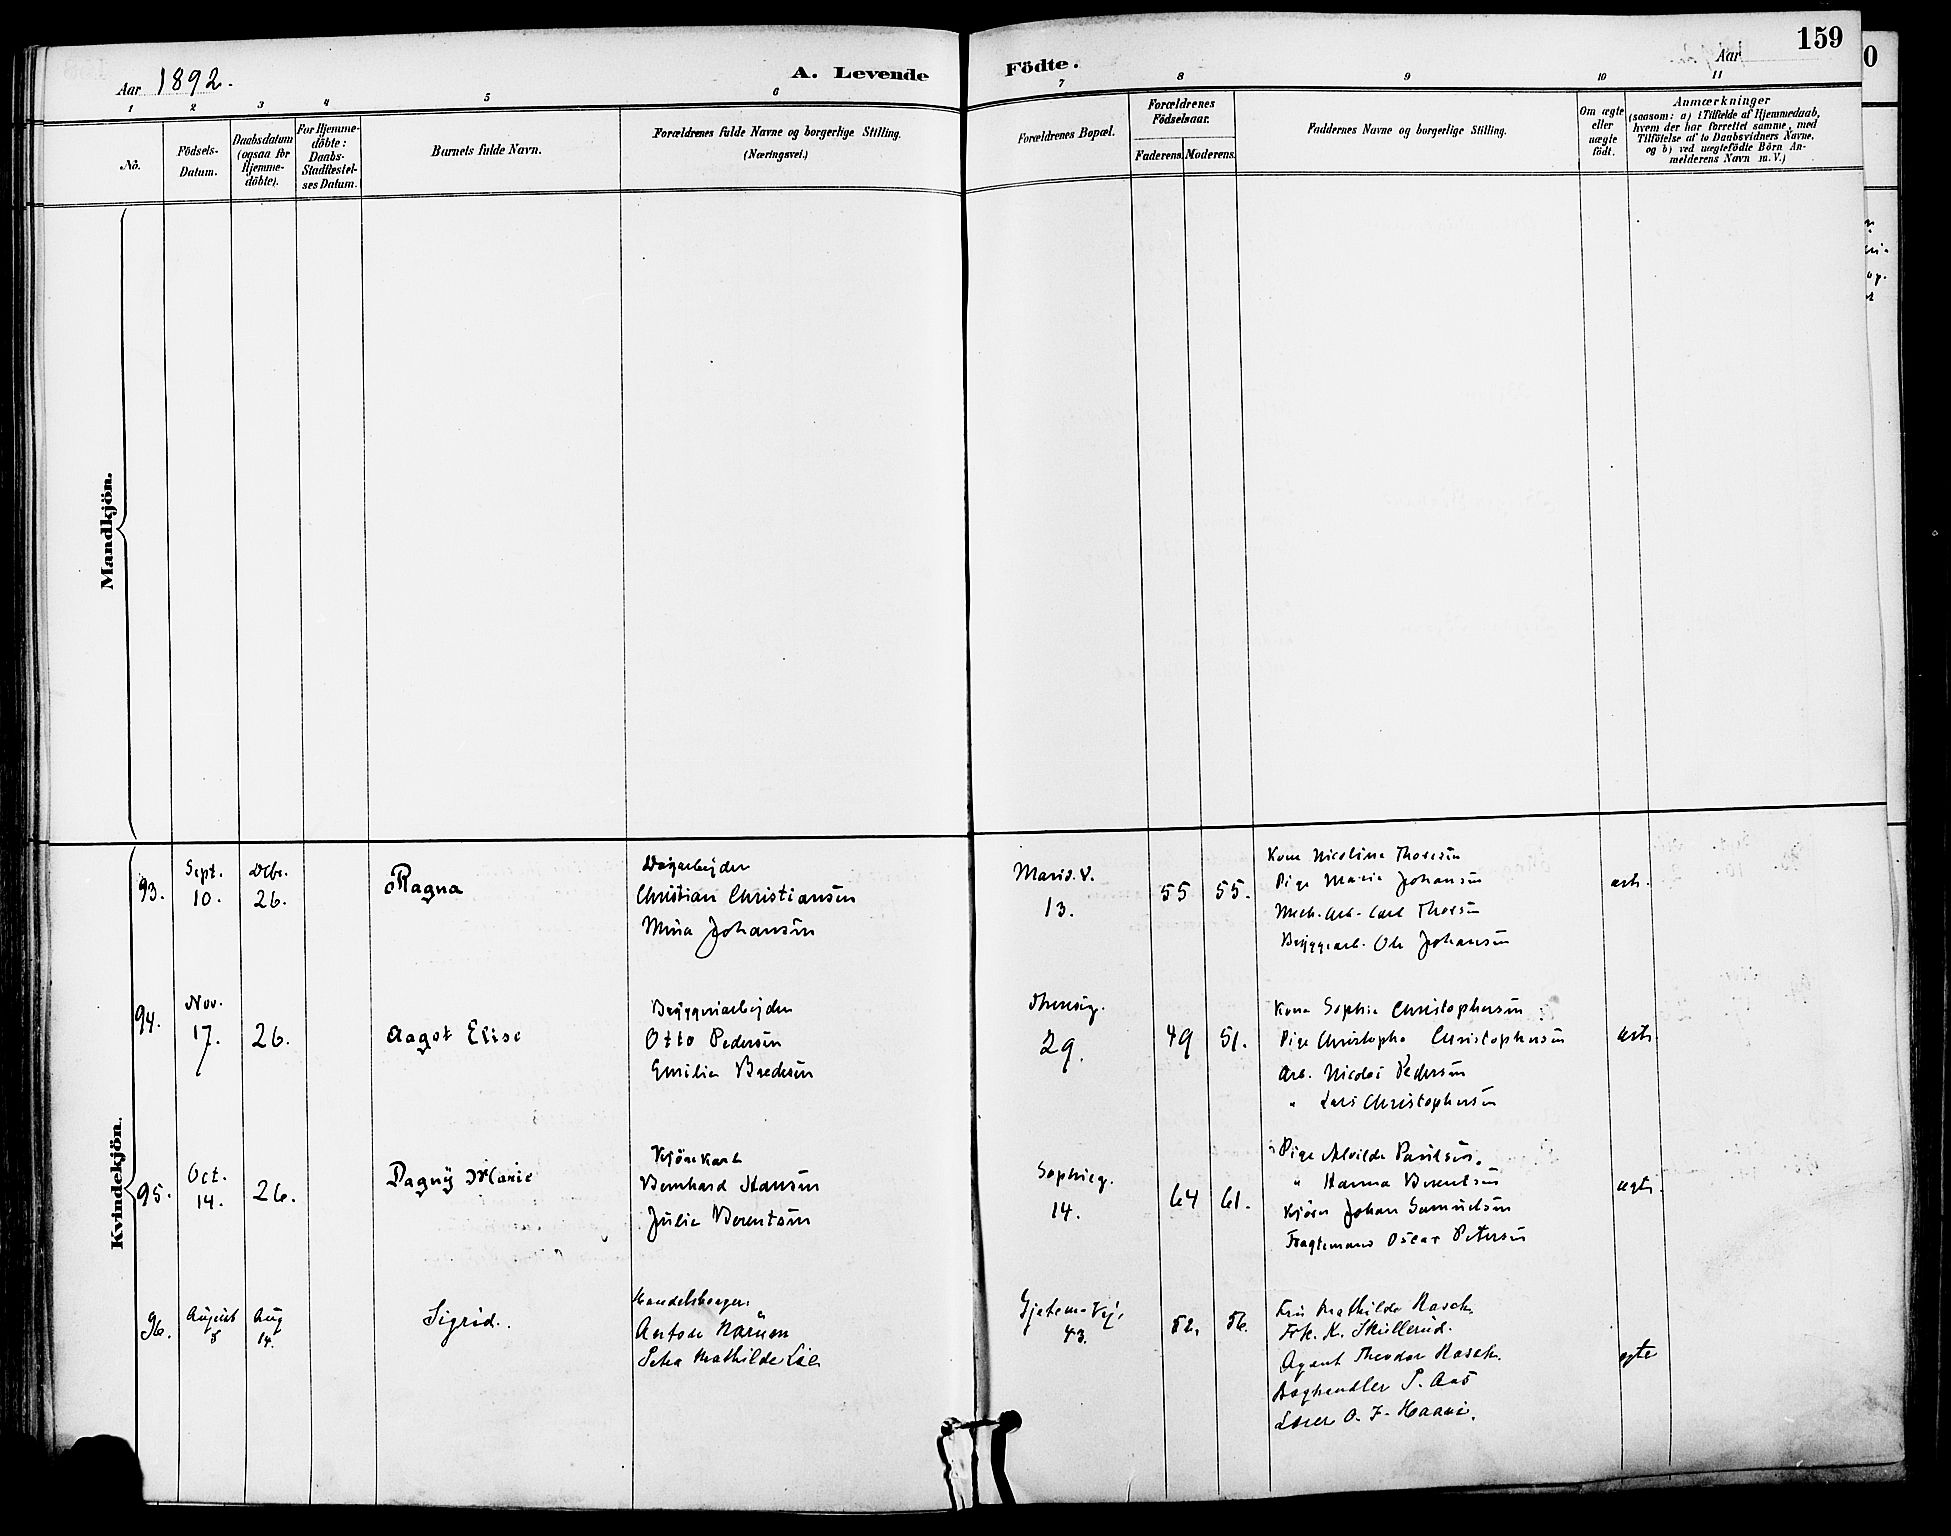 159
Aar 1892.
A. Levende Födte.
Aar
1 2 3 4 5 6 7 8 9 10 11
No.
Födsels-
Datum.
Daabsdatum
(ogsaa for
Hjemme-
döbte).
For Hjemme-
döbte:
Daabs-
Stadfestel-
ses Datum.
Barnets fulde Navn.
Forældrenes fulde Navne og borgerlige Stilling.
(Næringsvei.)
Forældrenes Bopæl.
Forældrenes
Födselsaar.
Faderens. Moderens.
Faddernes Navne og borgerlige Stilling.
Om ægte
eller
uægte
födt.
Anmærkninger
(saasom: a) i Tilfælde af Hjemmedaab,
hvem der har forrettet samme, med
Tilföielse af to Daabsvidners Navne.
og b) ved uægtefödte Börn An-
melderens Navn m. V.)
Mandkjön.
Kvindekjön.
93.
Sept.
10.
Dcbr.
26.
Ragna
Christian Christiansen
Mina Johansen
Marid. v.
13.
55 55.
Kone Nicoline Thoresen
Pige Marie Johansen
Mek. Arb. Carl Thoresen
Bryggearb. Ole Johansen
94.
Nov.
17.
26.
Aagot Elise
Bryggeriarbejder
Otto Pedersen
Emilie Bredesen
29.
49 51.
Kone Sophie Christophersen
Pige Christophe Christophersen
Arb. Nicolai Pedersen
" Lars Christophersen
95.
Oct.
14.
26.
Dagny Marie
Kjörekarl
Bernhard Hansen
Julie Berentsen
Sophieg.
14.
64 61.
Pige Alvilde Paulsen.
" Hanna Berentsen
Kjörer Johan Samuelsen
Fragtemand Oscar Petersen
ægte.
96.
August
8
Aug
14.
Sigrid.
Handelsborger.
Anton
Petra Mathilde Lie
43.
52. 56.
Fru Mathilde Rasch.
Frk. K. Skullerud.
Agent Theodor Rasch.
Boghandler P. Aas
Lærer O. J.
ægte